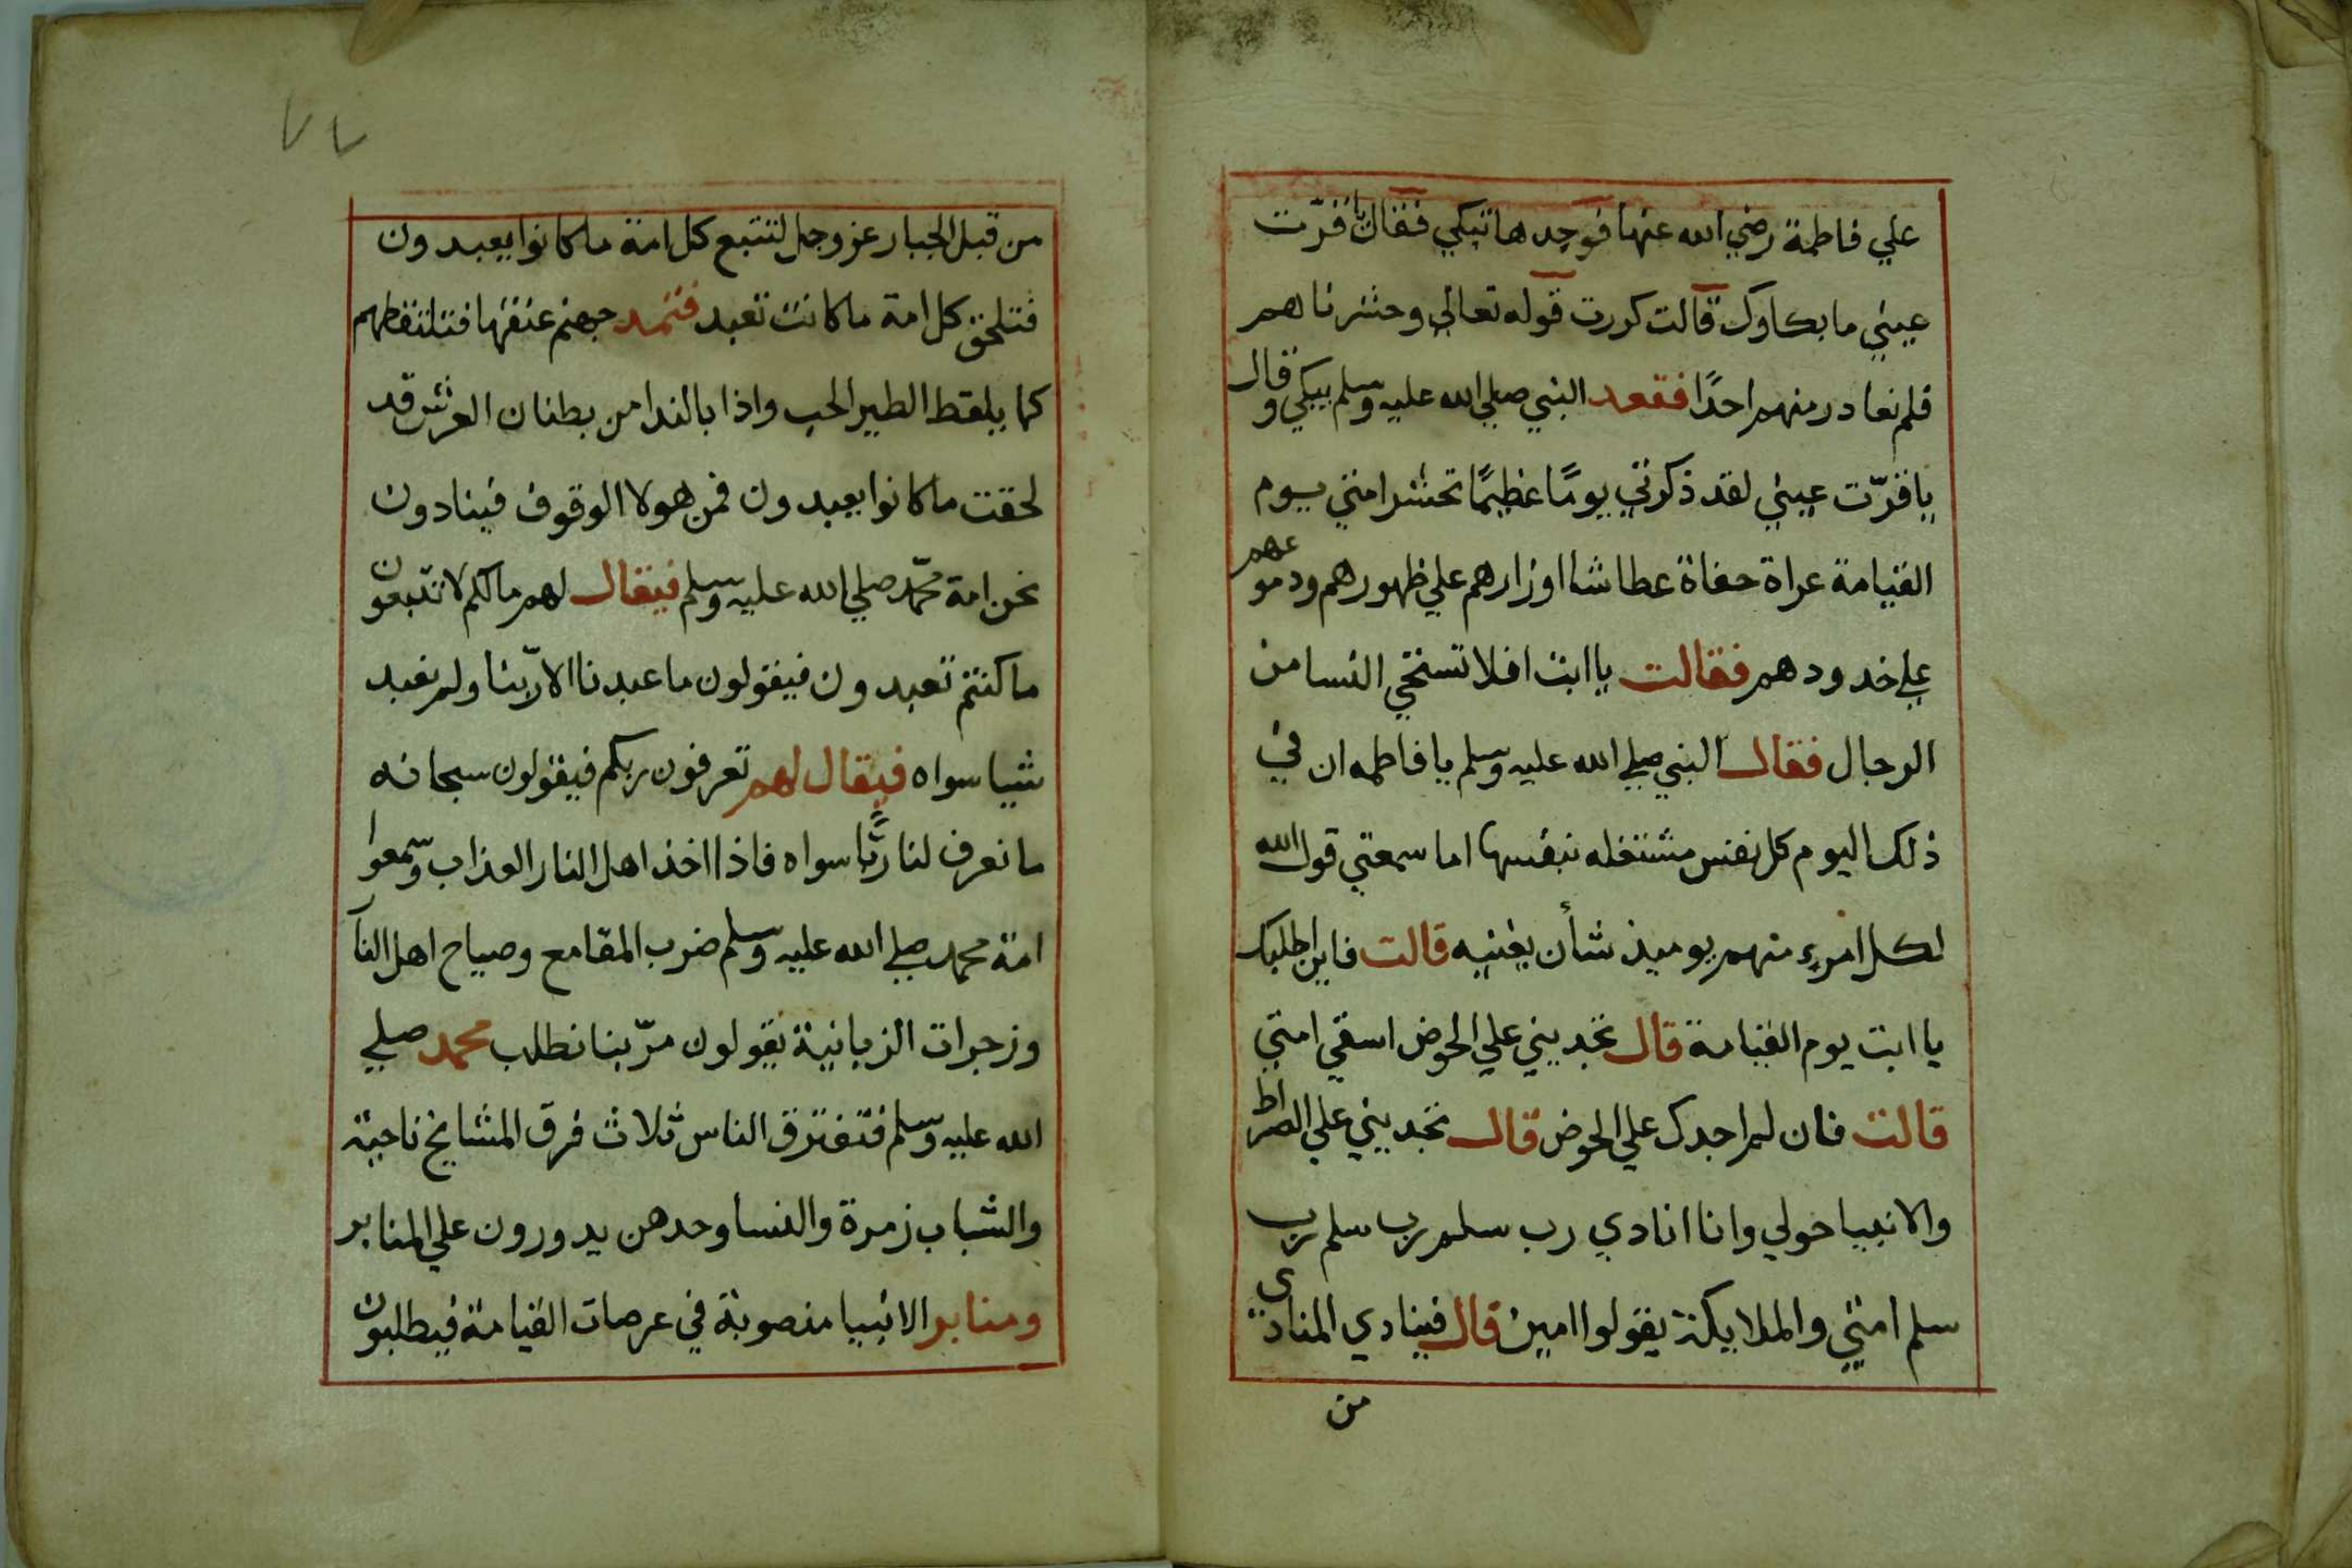 علي فاطمة رضي الله عنها فوجدها تبكي فقال يا قرّت
عيني ما بكاوك قالت كررت قوله تعالي وحشرناهم
فلم نغادر منهم احدًا فقعد النبي صلي الله عليه وسلم يبكي وقال
يا قرّت عيني لقد ذكرتي يومًا عظيمًا تحشر امتي يوم
القيامة عراة حفاة عطاشا اوزارهم علي ظهورهم ودموعهم
علي خدودهم فقالت يا ابت افلا تستحي النسا من
الرجال فقال النبي صلي الله عليه وسلم يا فاطمه ان في
ذلك اليوم كل نفس مشتغله بنفسها اما سمعتي قول الله
لكل امرء منهم يوميذ شأن يغنيه قالت فاين اطلبك
يا ابت يوم القيامة قال تجديني علي الحوض اسقي امتي
قالت فان لم اجدك علي الحوض قال تجديني علي الصراط
والانبيا حولي وانا انادي رب سلم رب سلم رب
سلم امتي والملايكة يقولوا امين قال فينادي المنادي
من
٧٧
من قبل الجبار عز وجل لتتبع كل امة ما كانوا يعبدون
فتلحق كل امة ما كانت تعبد فتمد جهنم عنقها فتلتقطهم
كما يلقط الطير الحب واذا بالندا من بطنان العرش قد
لحقت ما كانوا يعبدون فمن هولا الوقوف فينادون
نحن امة محمّد صلي الله عليه وسلم فيقال لهم مالكم لا تتبعون
ما كنتم تعبدون فيقولون ما عبدنا الا ربّنا ولم نعبد
شيا سواه فيقال لهم تعرفون ربكم فيقولون سبحانه
ما نعرف لنا ربًّا سواه فاذا اخذ اهل النار العذاب وسمعوا
امة محمد صلي الله عليه وسلم ضرب المقامع وصياح اهل النا
وزجرات الزبانية يقولون مرّ بنا نطلب محمد صلي
الله عليه وسلم فتفترق الناس ثلاث فرق المشايخ ناحية
والشباب زمرة والنسا وحدهن يدورون علي المنابر
ومنابر الانبيا منصوبة في عرصات القيامة فيطلبون